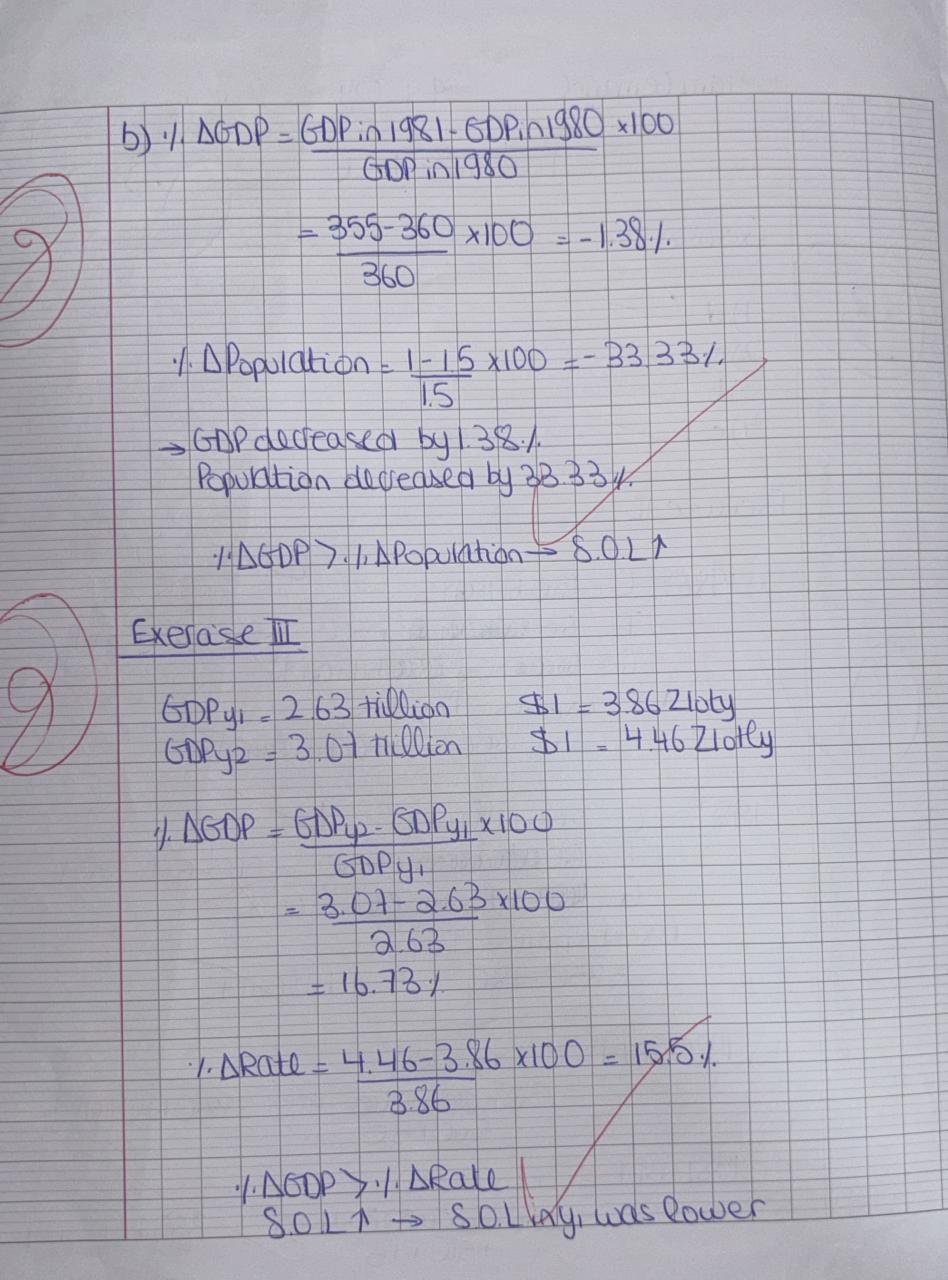 b) % ΔGDP = GDP in 1981 - GDP in 1980 ×100
GDP in 1980
= 355-360 ×100 = -1.38%
360
% ΔPopulation = 1-1.5 ×100 = -33.33%
1.5
→ GDP decreased by 1.38%
Population decreased by 33.33%
% ΔGDP > % ΔPopulation → S.O.L ↑
Exercise III
GDPy1 = 2.63 trillion $1 = 3.86 Zloty
GDPy2 = 3.07 trillion $1 = 4.46 Zlotly
% ΔGDP = GDPy2 - GDPy1 ×100
GDPy1
= 3.07-2.63 ×100
2.63
= 16.73%
% ΔRate = 4.46-3.86 ×100 = 15.5%
3.86
% ΔGDP > % ΔRate
S.O.L ↑ → S.O.L in y1 was lower